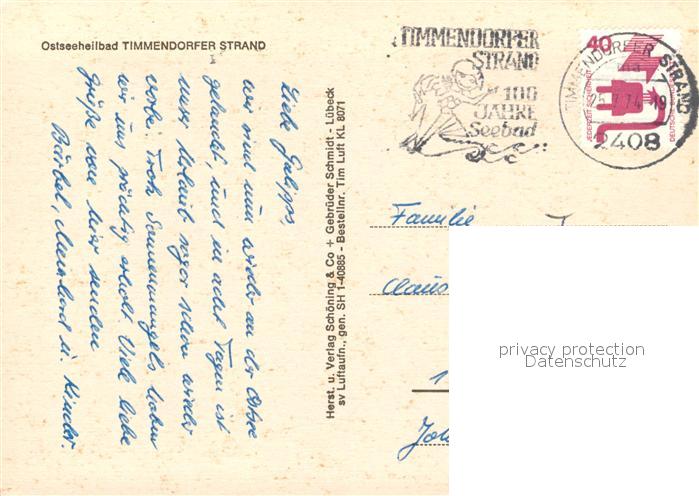 Ostseeheilbad TIMMENDORFER STRAND
Liebe
wir sind nun wieder an der Ostsee
gelandet, und in acht Tagen ist
unser Urlaub sogar schon wieder
vorbei. Trotz Sonnenmangels haben
wir uns prächtig erholt. Viele liebe
Grüße von hier senden
Bärbel, Meinhard u. Kinder.
Herst. u. Verlag Schöning & Co + Gebrüder Schmidt - Lübeck
sv Luftaufn., gen. SH 1-40885 - Bestellnr. Tim Luft KL 8071
TIMMENDORFER
STRAND
100
JAHRE
Seebad
TIMMENDORFER STRAND
7.74
2408
40
JEDERZEIT SICHERHEIT
DEUTSCHE BUNDESPOST
Familie
Claus
1
privacy protection
Datenschutz